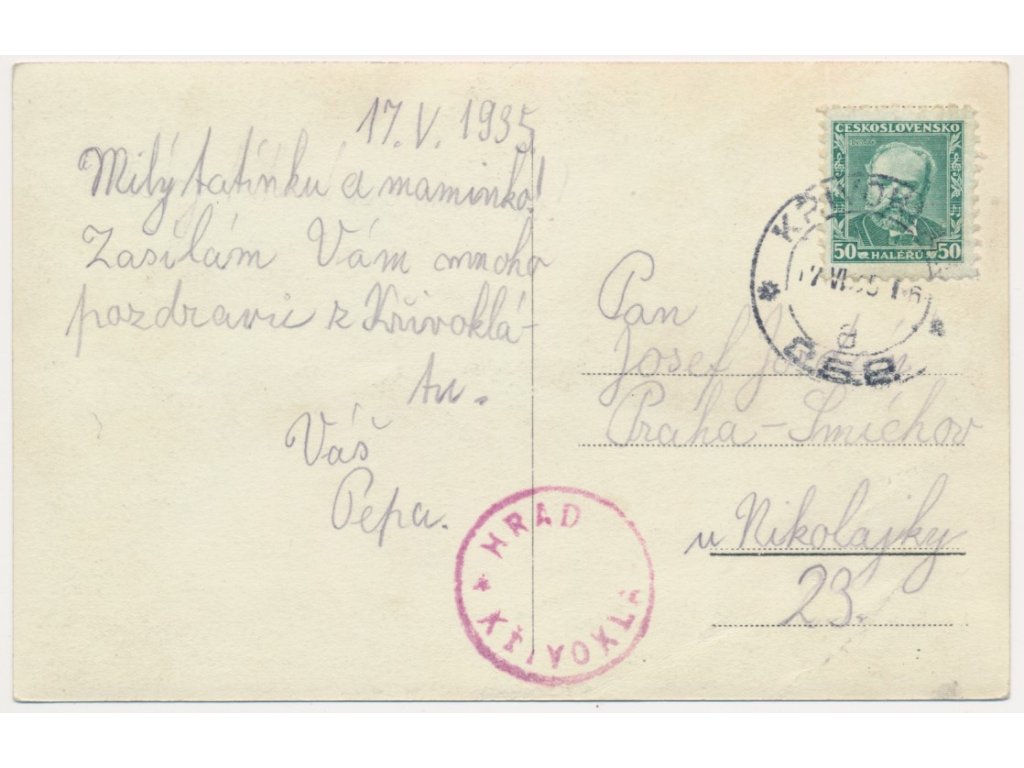 17.V. 1935
Milý tatínku a maminko!
Zasílám Vám mnoho
pozdravů z Křivoklá-
tu.
Váš
Pepa.
ČESKOSLOVENSKO
50 HALÉŘŮ 50
Pan
Josef
Praha-Smíchov
u Nikolajky
23.
HRAD
KŘIVOKLÁ